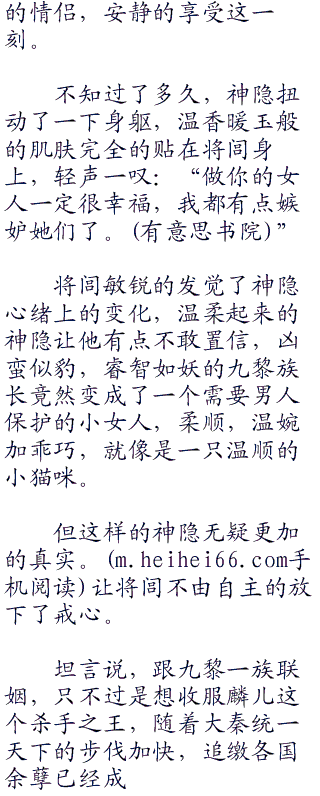 的情侣，安静的享受这一
刻。
不知过了多久，神隐扭
动了一下身躯，温香暖玉般
的肌肤完全的贴在将闾身
上，轻声一叹：“做你的女
人一定很幸福，我都有点嫉
妒她们了。(有意思书院)”
将闾敏锐的发觉了神隐
心绪上的变化，温柔起来的
神隐让他有点不敢置信，凶
蛮似豹，睿智如妖的九黎族
长竟然变成了一个需要男人
保护的小女人，柔顺，温婉
加乖巧，就像是一只温顺的
小猫咪。
但这样的神隐无疑更加
的真实。(m.heihei66.com手
机阅读)让将闾不由自主的放
下了戒心。
坦言说，跟九黎一族联
姻，只不过是想收服麟儿这
个杀手之王，随着大秦统一
天下的步伐加快，追缴各国
余孽已经成